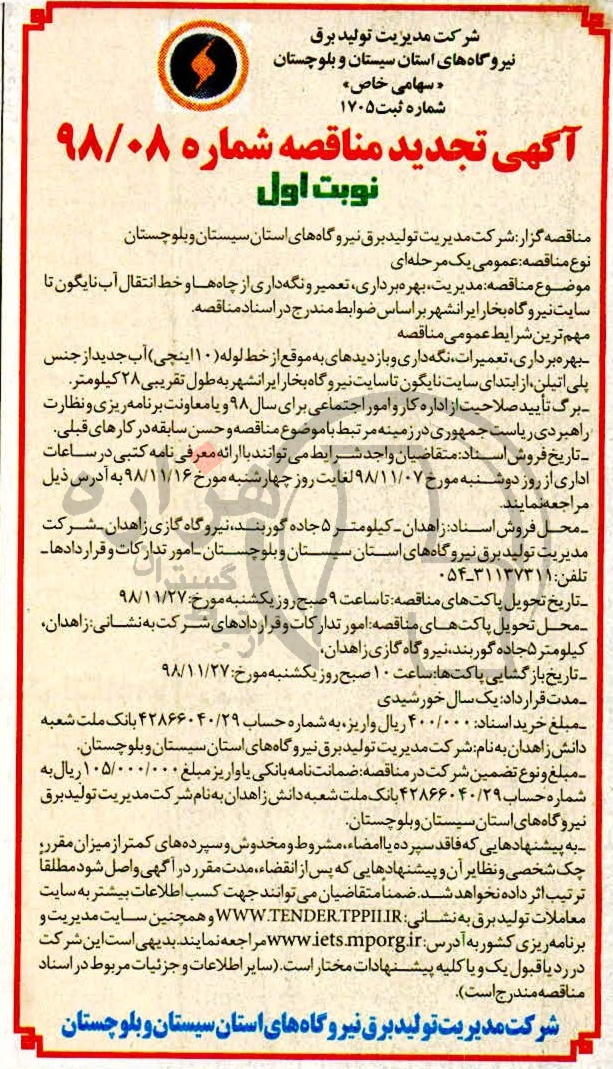 شرکت مدیریت تولید برق
نیروگاه‌های استان سیستان و بلوچستان
« سهامی خاص »
شماره ثبت ۱۷۰۵
آگهی تجدید مناقصه شماره ۹۸/۰۸
نوبت اول
مناقصه گزار: شرکت مدیریت تولید برق نیروگاه‌های استان سیستان و بلوچستان
نوع مناقصه: عمومی یک مرحله‌ای
موضوع مناقصه: مدیریت، بهره برداری، تعمیر و نگه‌داری از چاه‌ها و خط انتقال آب نایگون تا
سایت نیروگاه بخار ایرانشهر بر اساس ضوابط مندرج در اسناد مناقصه.
مهم ترین شرایط عمومی مناقصه
ـ بهره برداری، تعمیرات، نگه‌داری و بازدیدهای به موقع از خط لوله (۱۰ اینچی) آب جدید از جنس
پلی اتیلن، از ابتدای سایت نایگون تا سایت نیروگاه بخار ایرانشهر به طول تقریبی ۲۸ کیلومتر.
ـ برگ تأیید صلاحیت از اداره کار و امور اجتماعی برای سال ۹۸ و یا معاونت برنامه ریزی و نظارت
راهبردی ریاست جمهوری در زمینه مرتبط با موضوع مناقصه و حسن سابقه در کارهای قبلی.
ـ تاریخ فروش اسناد: متقاضیان واجد شرایط می توانند با ارائه معرفی نامه کتبی در ساعات
اداری از روز دوشنبه مورخ ۹۸/۱۱/۰۷ لغایت روز چهارشنبه مورخ ۹۸/۱۱/۱۶ به آدرس ذیل
مراجعه نمایند.
ـ محل فروش اسناد: زاهدان ـ کیلومتر ۵ جاده گوربند، نیروگاه گازی زاهدان ـ شرکت
مدیریت تولید برق نیروگاه‌های استان سیستان و بلوچستان ـ امور تدارکات و قراردادها ـ
تلفن: ۳۱۱۳۷۳۱۱-۰۵۴
ـ تاریخ تحویل پاکت‌های مناقصه: تا ساعت ۹ صبح روز یکشنبه مورخ: ۹۸/۱۱/۲۷
ـ محل تحویل پاکت‌های مناقصه: امور تدارکات و قراردادهای شرکت به نشانی: زاهدان،
کیلومتر ۵ جاده گوربند، نیروگاه گازی زاهدان،
ـ تاریخ بازگشایی پاکت‌ها: ساعت ۱۰ صبح روز یکشنبه مورخ: ۹۸/۱۱/۲۷
ـ مدت قرارداد: یک سال خورشیدی
ـ مبلغ خرید اسناد: ۴۰۰/۰۰۰ ریال واریز، به شماره حساب ۴۲۸۶۶۰۴۰/۲۹ بانک ملت شعبه
دانش زاهدان به نام: شرکت مدیریت تولید برق نیروگاه‌های استان سیستان و بلوچستان.
ـ مبلغ و نوع تضمین شرکت در مناقصه: ضمانت نامه بانکی یا واریز مبلغ ۱۰۵/۰۰۰/۰۰۰ ریال به
شماره حساب ۴۲۸۶۶۰۴۰/۲۹ بانک ملت شعبه دانش زاهدان به نام شرکت مدیریت تولید برق
نیروگاه‌های استان سیستان و بلوچستان.
ـ به پیشنهادهایی که فاقد سپرده یا امضاء، مشروط و مخدوش و سپرده‌های کمتر از میزان مقرر،
چک شخصی و نظایر آن و پیشنهادهایی که پس از انقضاء، مدت مقرر در آگهی واصل شود مطلقا
ترتیب اثر داده نخواهد شد. ضمناً متقاضیان می توانند جهت کسب اطلاعات بیشتر به سایت
معاملات تولید برق به نشانی: WWW.TENDER.TPPII.IR و همچنین سایت مدیریت و
برنامه ریزی کشور به آدرس: www.iets.mporg.ir مراجعه نمایند. بدیهی است این شرکت
در رد یا قبول یک و یا کلیه پیشنهادات مختار است. (سایر اطلاعات و جزئیات مربوط در اسناد
مناقصه مندرج است).
شرکت مدیریت تولید برق نیروگاه‌های استان سیستان و بلوچستان
هزاره